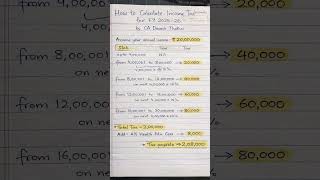 How to Calculate Income Tax
for FY 2025-26
by CA Deepak Thakur
Assume your annual income ₹ 20,00,000
Slab Tax
Upto 4,00,000 NIL
from 4,00,001 to 8,00,000 → 20,000
from 8,00,001 to 12,00,000 → 40,000
on next 4,00,000
from 12,00,001 to 16,00,000 → 60,000
on next 4,00,000
from 16,00,001 to 20,00,000 → 80,000
on next 4,00,000
Total Tax = 2,00,000
Add:- 4% Health Edu Cess → 8,000
Tax payable → 2,08,000
from 4,00,
from 8,00,00
on ne
from 12,00,
on ne
from 16,00,
→ 20,000
→ 40,000
→ 60,000
→ 80,000